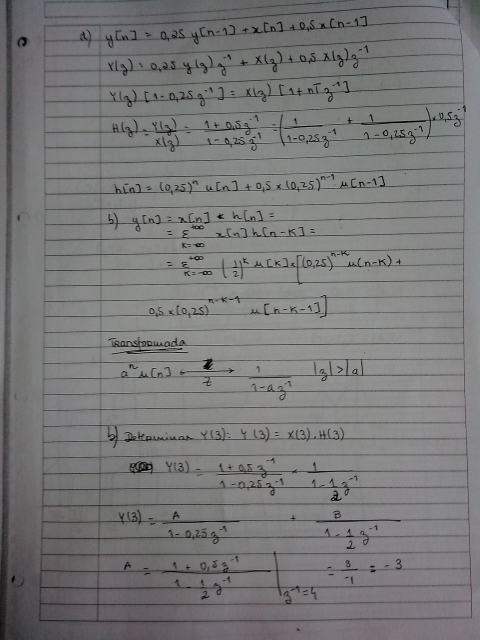 a) y[n] = 0,25 y[n-1] + x[n] + 0,5 x[n-1]
Y(z) = 0,25 y(z) z⁻¹ + X(z) + 0,5 X(z) z⁻¹
Y(z) [1-0,25z⁻¹] = X(z) [1+ z⁻¹]
H(z) = Y(z)/X(z) = (1 + 0,5z⁻¹)/(1 - 0,25z⁻¹) = (1/(1-0,25z⁻¹) + 1/(1-0,25z⁻¹)) x 0,5z⁻¹
h[n] = (0,25)ⁿ u[n] + 0,5 x (0,25)ⁿ⁻¹ u[n-1]
b) y[n] = x[n] * h[n] =
= Σ_{K=-∞}^{+∞} x[n] h[n-K] =
= Σ_{K=-∞}^{+∞} (1/2)^K u[K] x [(0,25)^{n-K} u(n-K) +
0,5 x (0,25)^{n-K-1} u[n-K-1]]
Transformada
aⁿ u[n] ⟷ z 1/(1-az⁻¹) |z| > |a|
b) Determinar Y(3): Y(3) = X(3).H(3)
Y(3) = (1+0,5z⁻¹)/(1-0,25z⁻¹) · 1/(1-1/2 z⁻¹)
Y(3) = A/(1-0,25z⁻¹) + B/(1-1/2 z⁻¹)
A = (1 + 0,5z⁻¹)/(1-1/2 z⁻¹) | z⁻¹=4 = 3/-1 = -3